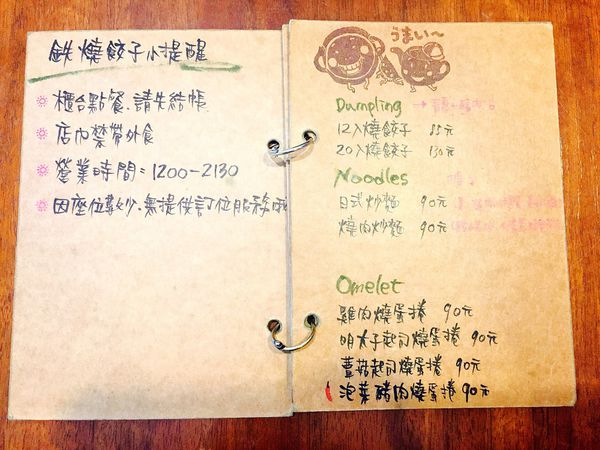 鉄燒餃子小提醒
櫃台點餐、請先結帳
店內禁帶外食
營業時間:1200-2130
因座位數少、無提供訂位服務哦
うまい〜
Dumpling →
12入燒餃子 85元
20入燒餃子 130元
Noodles
日式炒麵 90元
燒肉炒麵 90元
Omelet
雞肉燒蛋捲 90元
明太子起司燒蛋捲 90元
蕈菇起司燒蛋捲 90元
泡菜豬肉燒蛋捲 90元